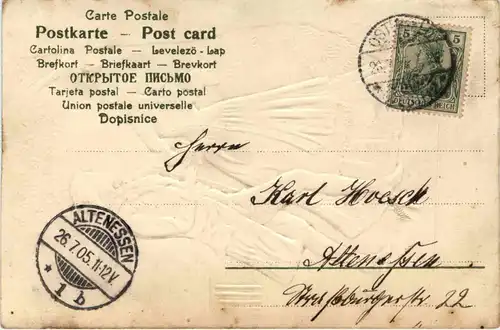 Carte Postale
Postkarte — Post card
Cartolina Postale — Levelezö-Lap
Brefkort — Briefkaart — Brevkort
ОТКРЫТОЕ ПИСЬМО
Tarjeta postal — Carto postal
Union postale universelle
Dopisnice
5 5
REICH
Herrn
Karl Hoesch
Altenessen
Straßburgerstr 22
ALTENESSEN
26.7.05.11-12V.
* 1 b